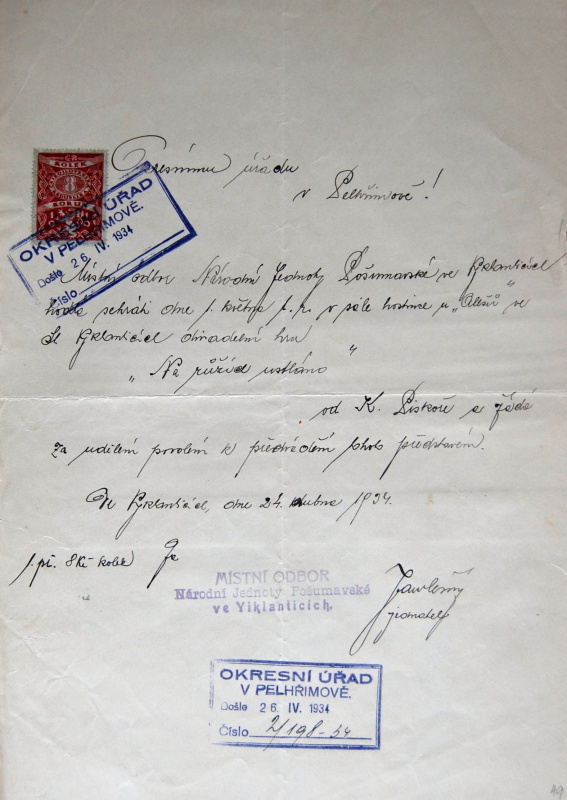 Okresnímu úřadu
v Pelhřimově!
KOLEK
8
OKRESNÍ ÚŘAD
V PELHŘIMOVĚ.
Došlo 26. IV. 1934
Číslo
Místní odbor Národní Jednoty Pošumavské ve Vyklanticích
hodlá sehráti dne 1. května t. r. v sále hostince u „Alešů" ve
St. Vyklanticích divadelní hru
„Na růžích ustláno"
od K. Piskoře a žádá
za udělení povolení k předvádění toho představení.
Ve Vyklanticích, dne 24. dubna 1934.
1 př. 8 Kč kolek
Za
MÍSTNÍ ODBOR
Národní Jednoty Pošumavské
ve Vyklanticích.
jednatel
OKRESNÍ ÚŘAD
V PELHŘIMOVĚ.
Došlo 26. IV. 1934
Číslo 2/198-34
49